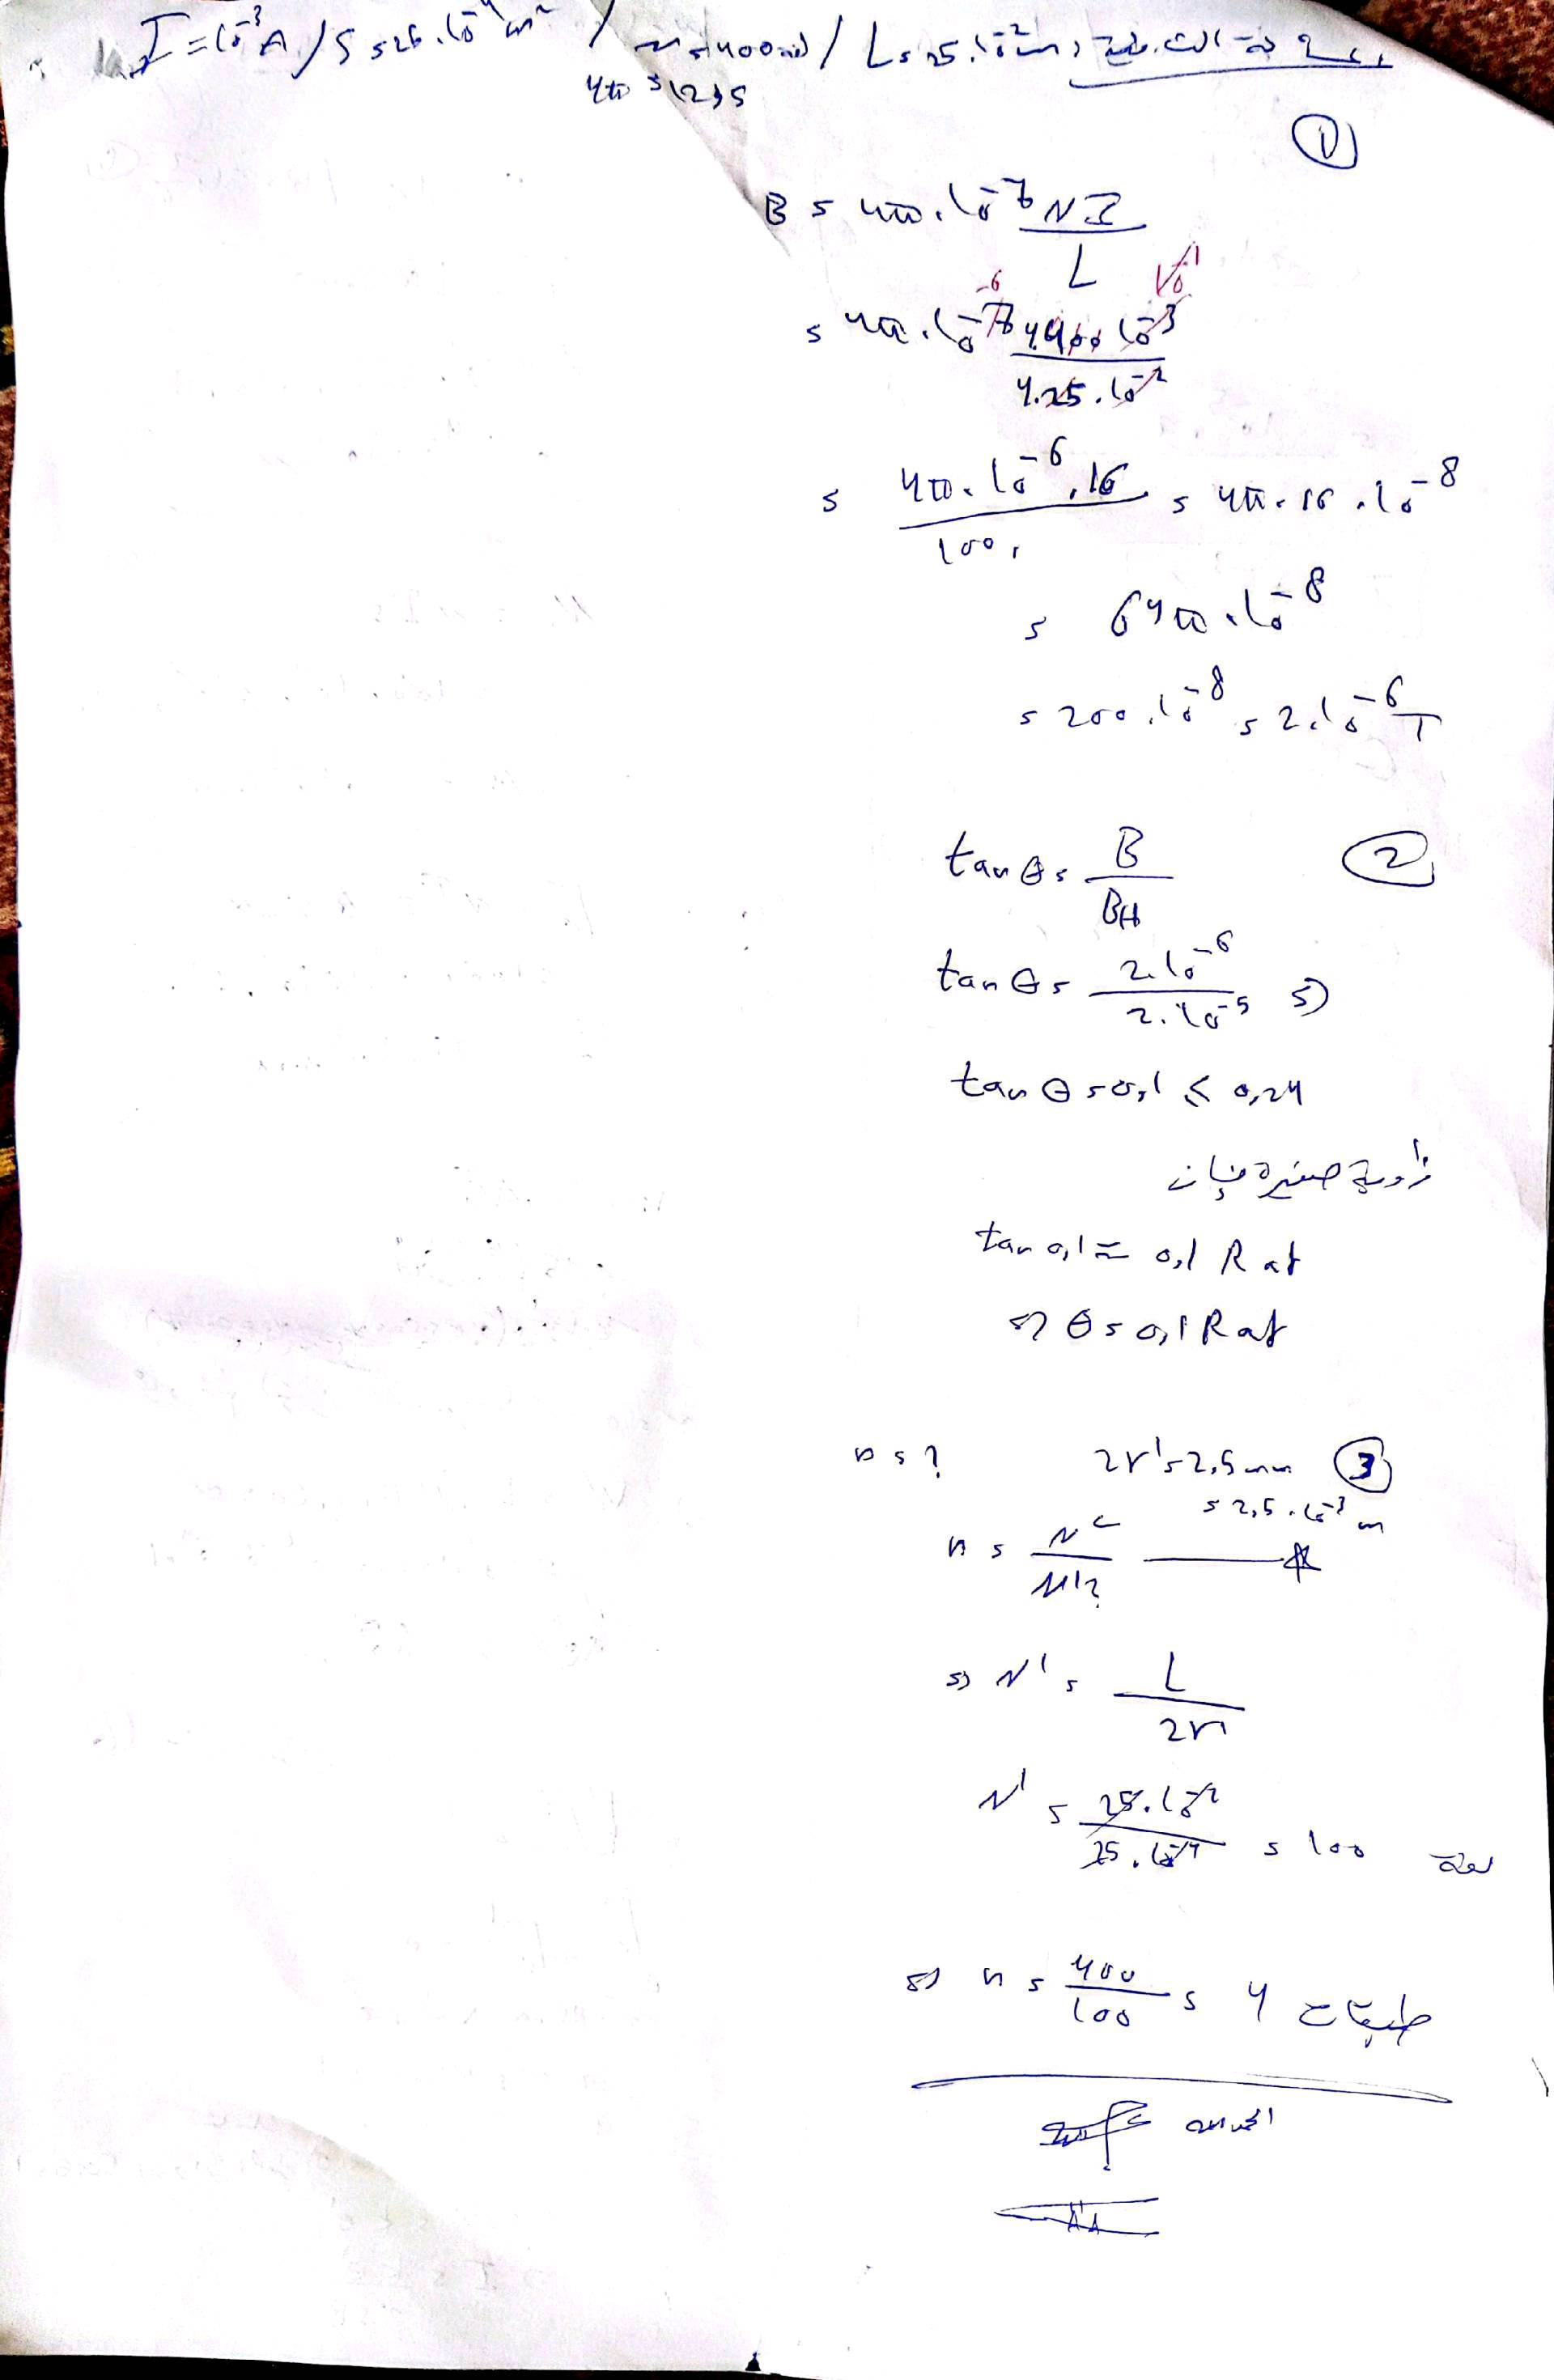 I = 10⁻³ A / S = 26.10⁻⁴ m² / N = 400 لفة / L = 25.10⁻² m
4π = 12,5
①
B = 4π.10⁻⁷ NI / L
= 4π.10⁻⁷ 4.400 10⁻³ / 4.25.10⁻²
= 4π.10⁻⁶.16 / 100 = 4π.16.10⁻⁸
= 64π.10⁻⁸
= 200.10⁻⁸ = 2.10⁻⁶ T
②
tan θ = B / BH
tan θ = 2.10⁻⁶ / 2.10⁻⁵ ⇒
tan θ = 0,1 ≤ 0,24
زاوية صغيرة فإن
tan 0,1 ≈ 0,1 Rat
⇒ θ = 0,1 Rat
n = ? 2r' = 2,5 mm ③
= 2,5.10⁻³ m
n = N / N'?
⇒ N' = L / 2r'
N' = 25.10⁻² / 25.10⁻⁴ = 100 لفة
⇒ n = 400 / 100 = 4 طبقات